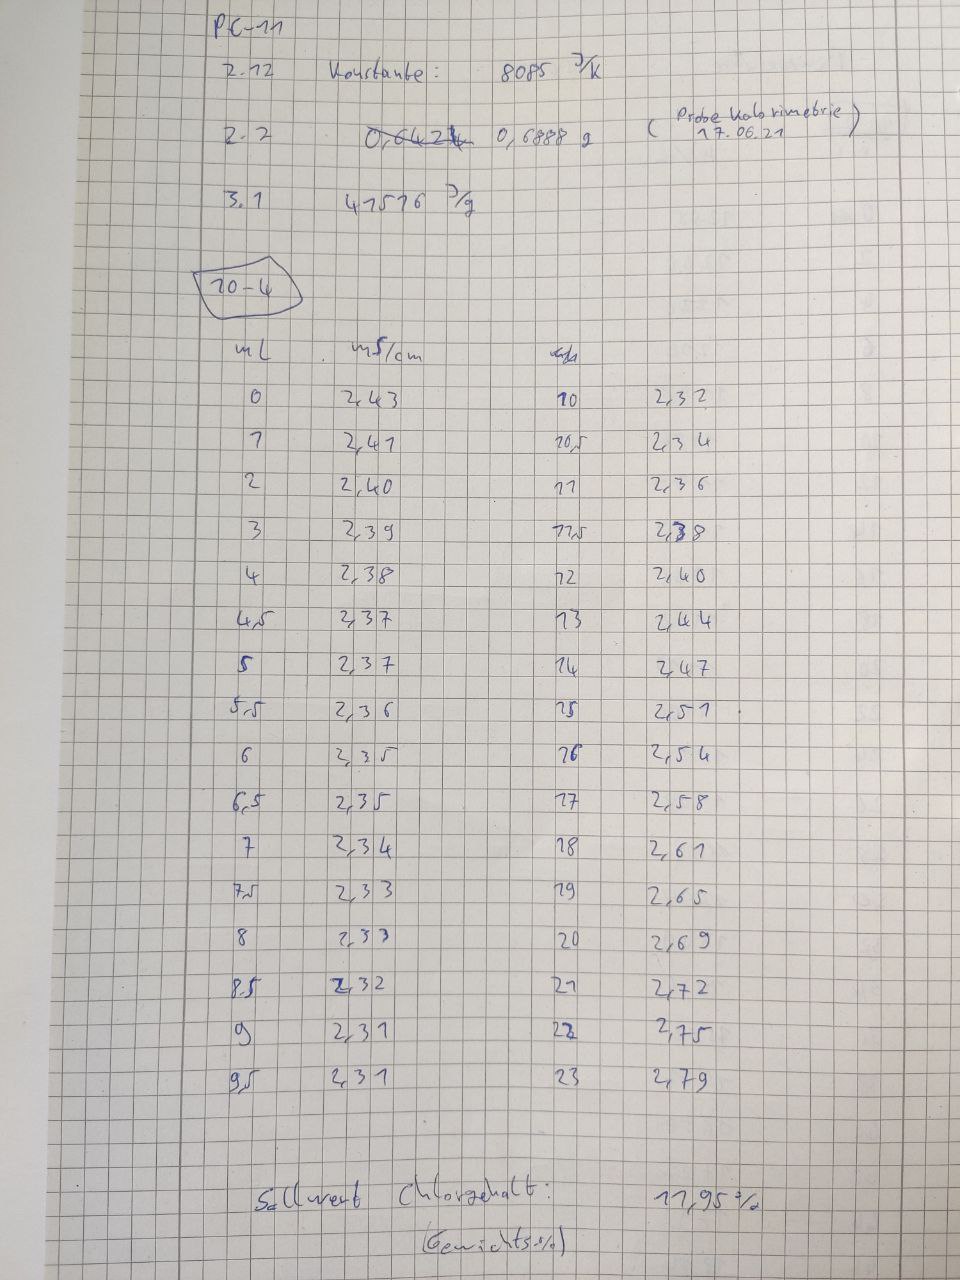 PC-11
2.12 Konstante: 8085 J/K
2.2 0,6424 0,6888 g (Probe Kalorimetrie 17.06.21)
3.1 41516 J/g
10-4
mL mS/cm
0 2,43 10 2,32
1 2,41 10,5 2,34
2 2,40 11 2,36
3 2,39 11,5 2,38
4 2,38 12 2,40
4,5 2,37 13 2,44
5 2,37 14 2,47
5,5 2,36 15 2,51
6 2,35 16 2,54
6,5 2,35 17 2,58
7 2,34 18 2,61
7,5 2,33 19 2,65
8 2,33 20 2,69
8.5 2,32 21 2,72
9 2,31 22 2,75
9,5 2,31 23 2,79
Sollwert Chlorgehalt: 11,95 %
(Gewichts%)